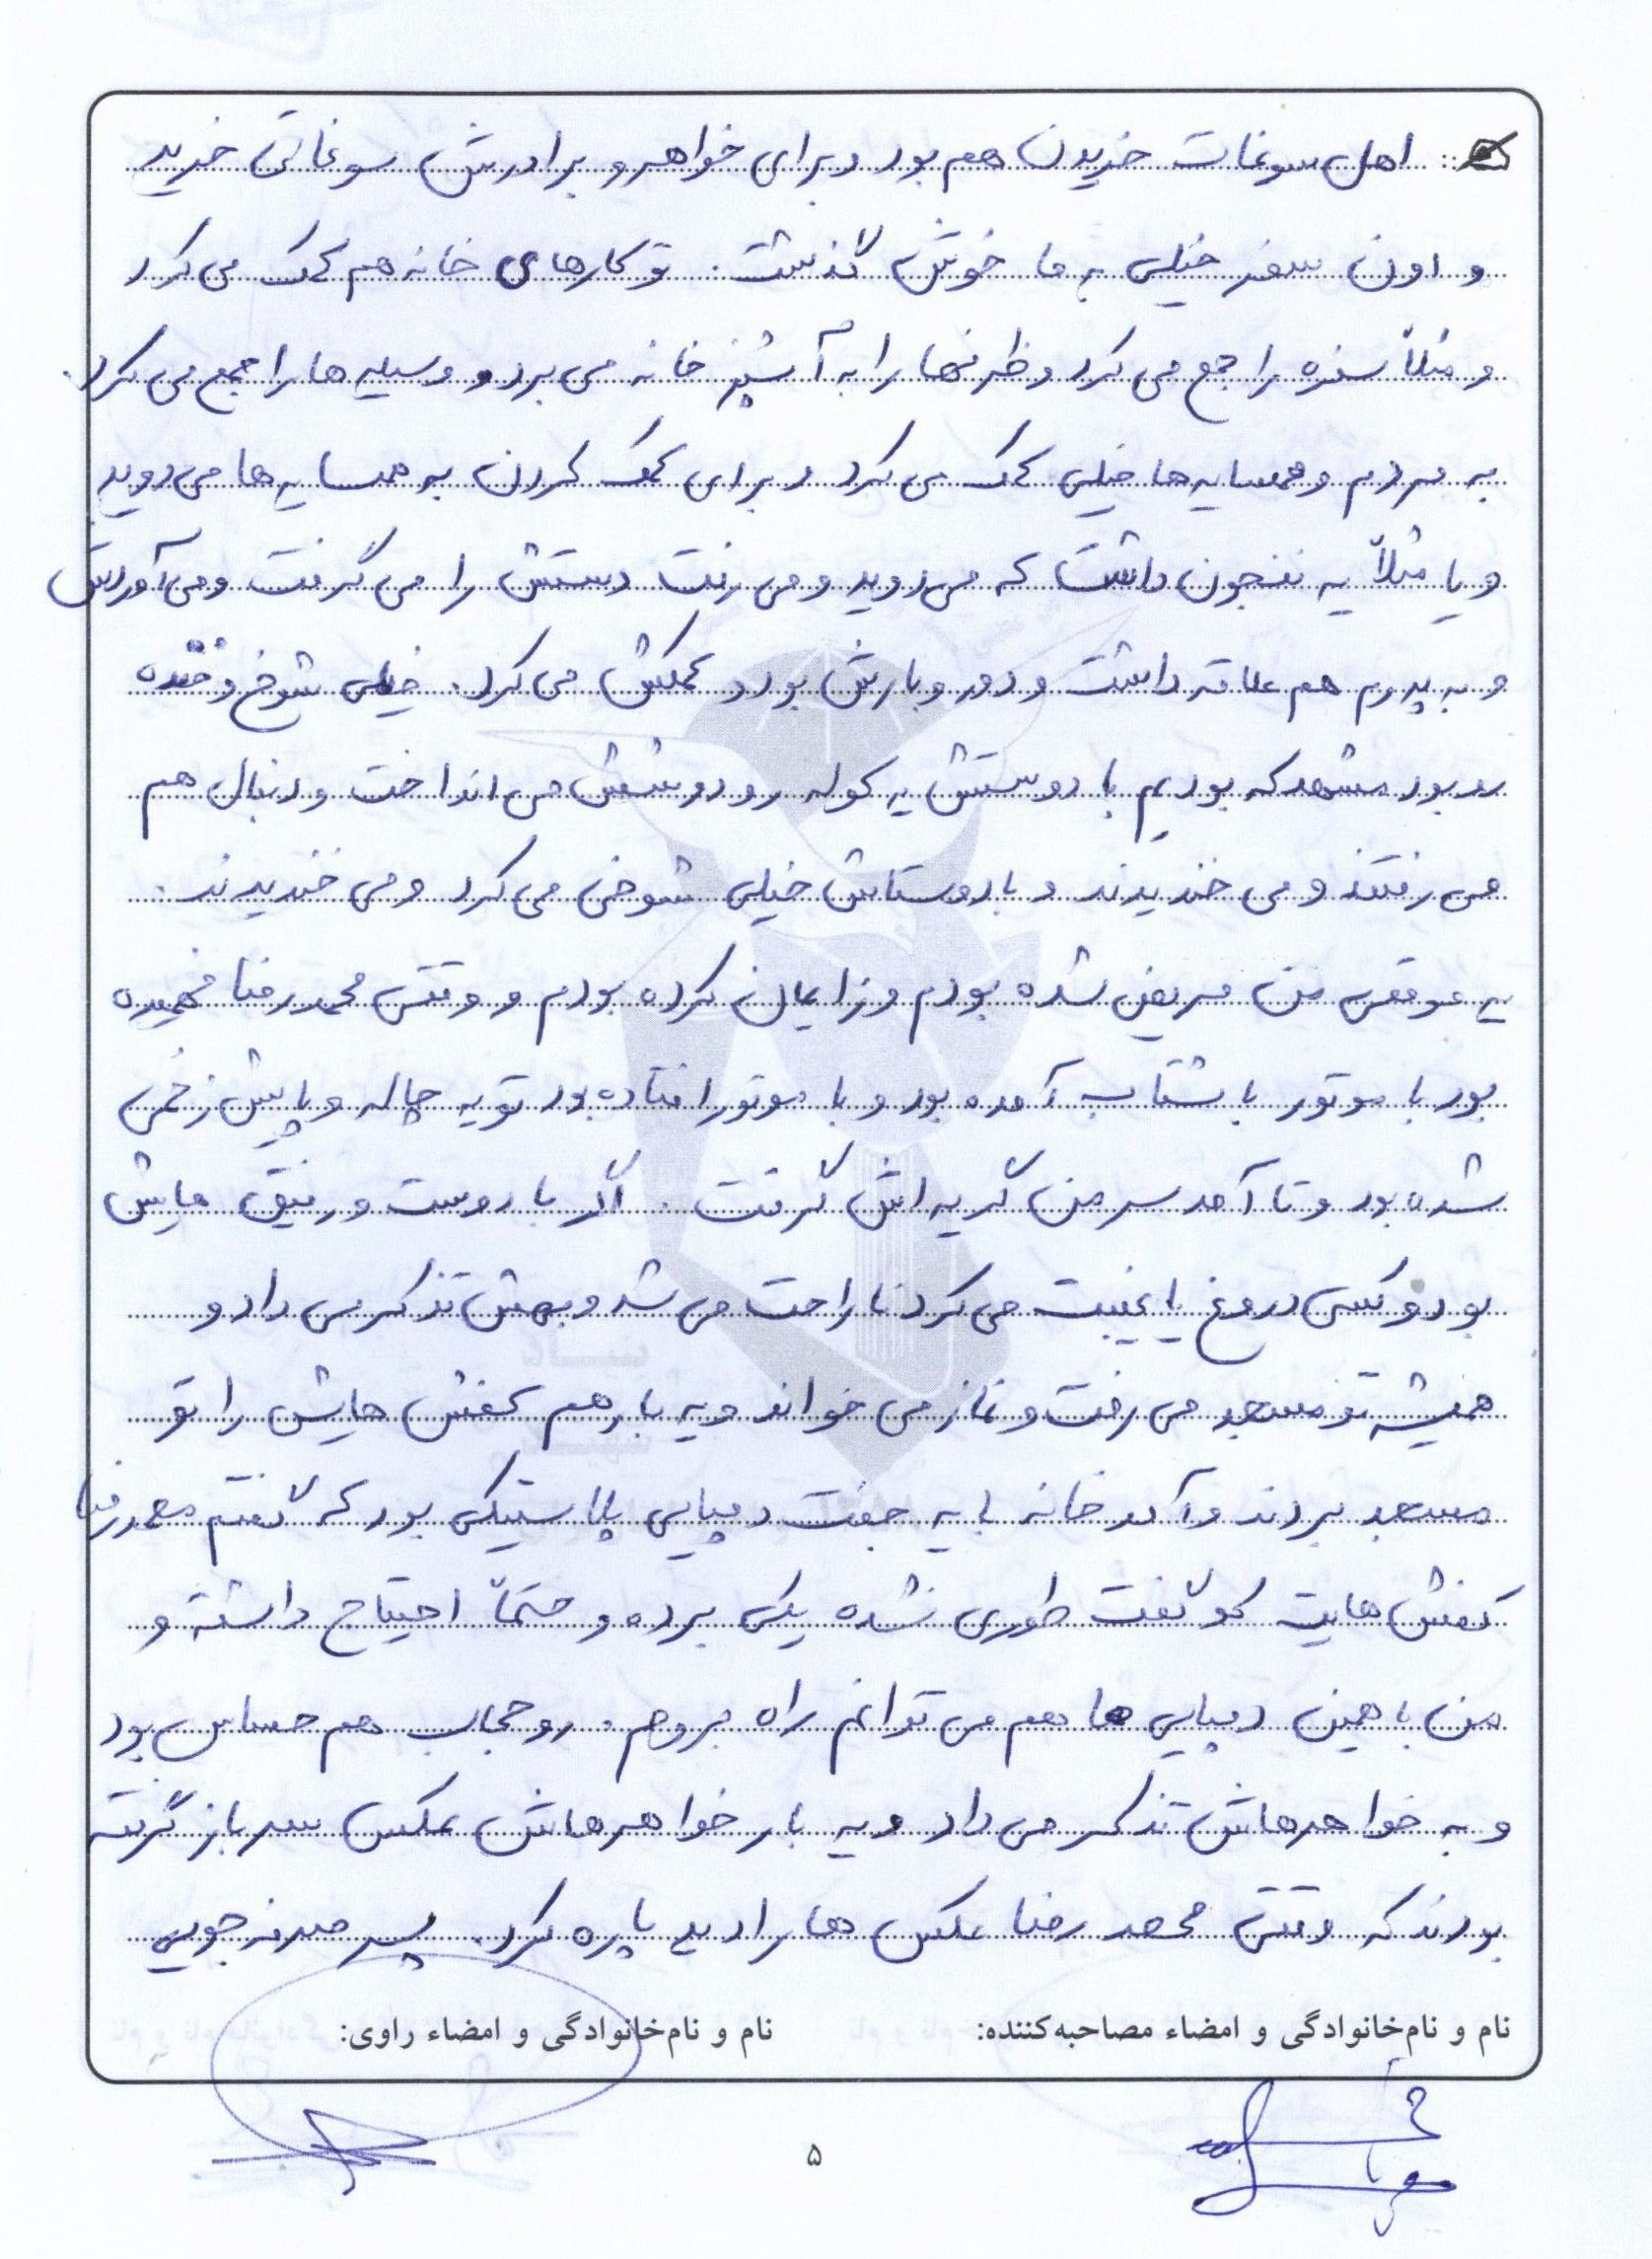 اهل سوغات خریدن هم بود و برای خواهر و برادرش سوغاتی خرید
و اون سفر خیلی به ما خوش گذشت. تو کارهای خانه هم کمک می کرد
و مثلاً سفره را جمع می کرد و ظرفها را به آشپزخانه می برد و وسیله ها را جمع می کرد.
به مردم و همسایه ها خیلی کمک می کرد و برای کمک کردن به همسایه ها می دوید
و یا مثلاً یه ننجون داشت که می دوید و می رفت دستش را می گرفت و می آوردش
و به پدرم هم علاقه داشت و دور و بارش بود و کمکش می کرد. خیلی شوخ و خنده
رو بود مشهد که بودیم با دوستش یه کوله رو دوشش می انداخت و دنبال هم
می رفتند و می خندیدند و با دوستاش خیلی شوخی می کرد و می خندیدند.
یه موقعی من مریض شده بودم و زایمان کرده بودم و وقتی محمدرضا فهمیده
بود با موتور با شتاب آمده بود و با موتور افتاده بود تو یه چاله و پایش زخمی
شده بود و تا آمد سر من گریه اش گرفت. اگر با دوست و رفیق هایش
بود و کسی دروغ یا غیبت می کرد ناراحت می شد و بهش تذکر می داد و
همیشه تو مسجد می رفت و نماز می خواند و یه بار هم کفش هایش را تو
مسجد بردند و آمد خانه با یه جفت دمپایی پلاستیکی بود که گفتم محمدرضا
کفش هایت کو گفت طوری نشده یکی برده و حتماً احتیاج داشته و
من با همین دمپایی ها هم می توانم راه بروم. رو حجاب هم حساس بود
و به خواهرهاش تذکر می داد و یه بار خواهرهاش عکس سرباز گرفته
بودند که وقتی محمدرضا عکس ها را دید پاره کرد. پسر صرفه جویی
نام و نام‌خانوادگی و امضاء مصاحبه‌کننده:
نام و نام‌خانوادگی و امضاء راوی:
۵